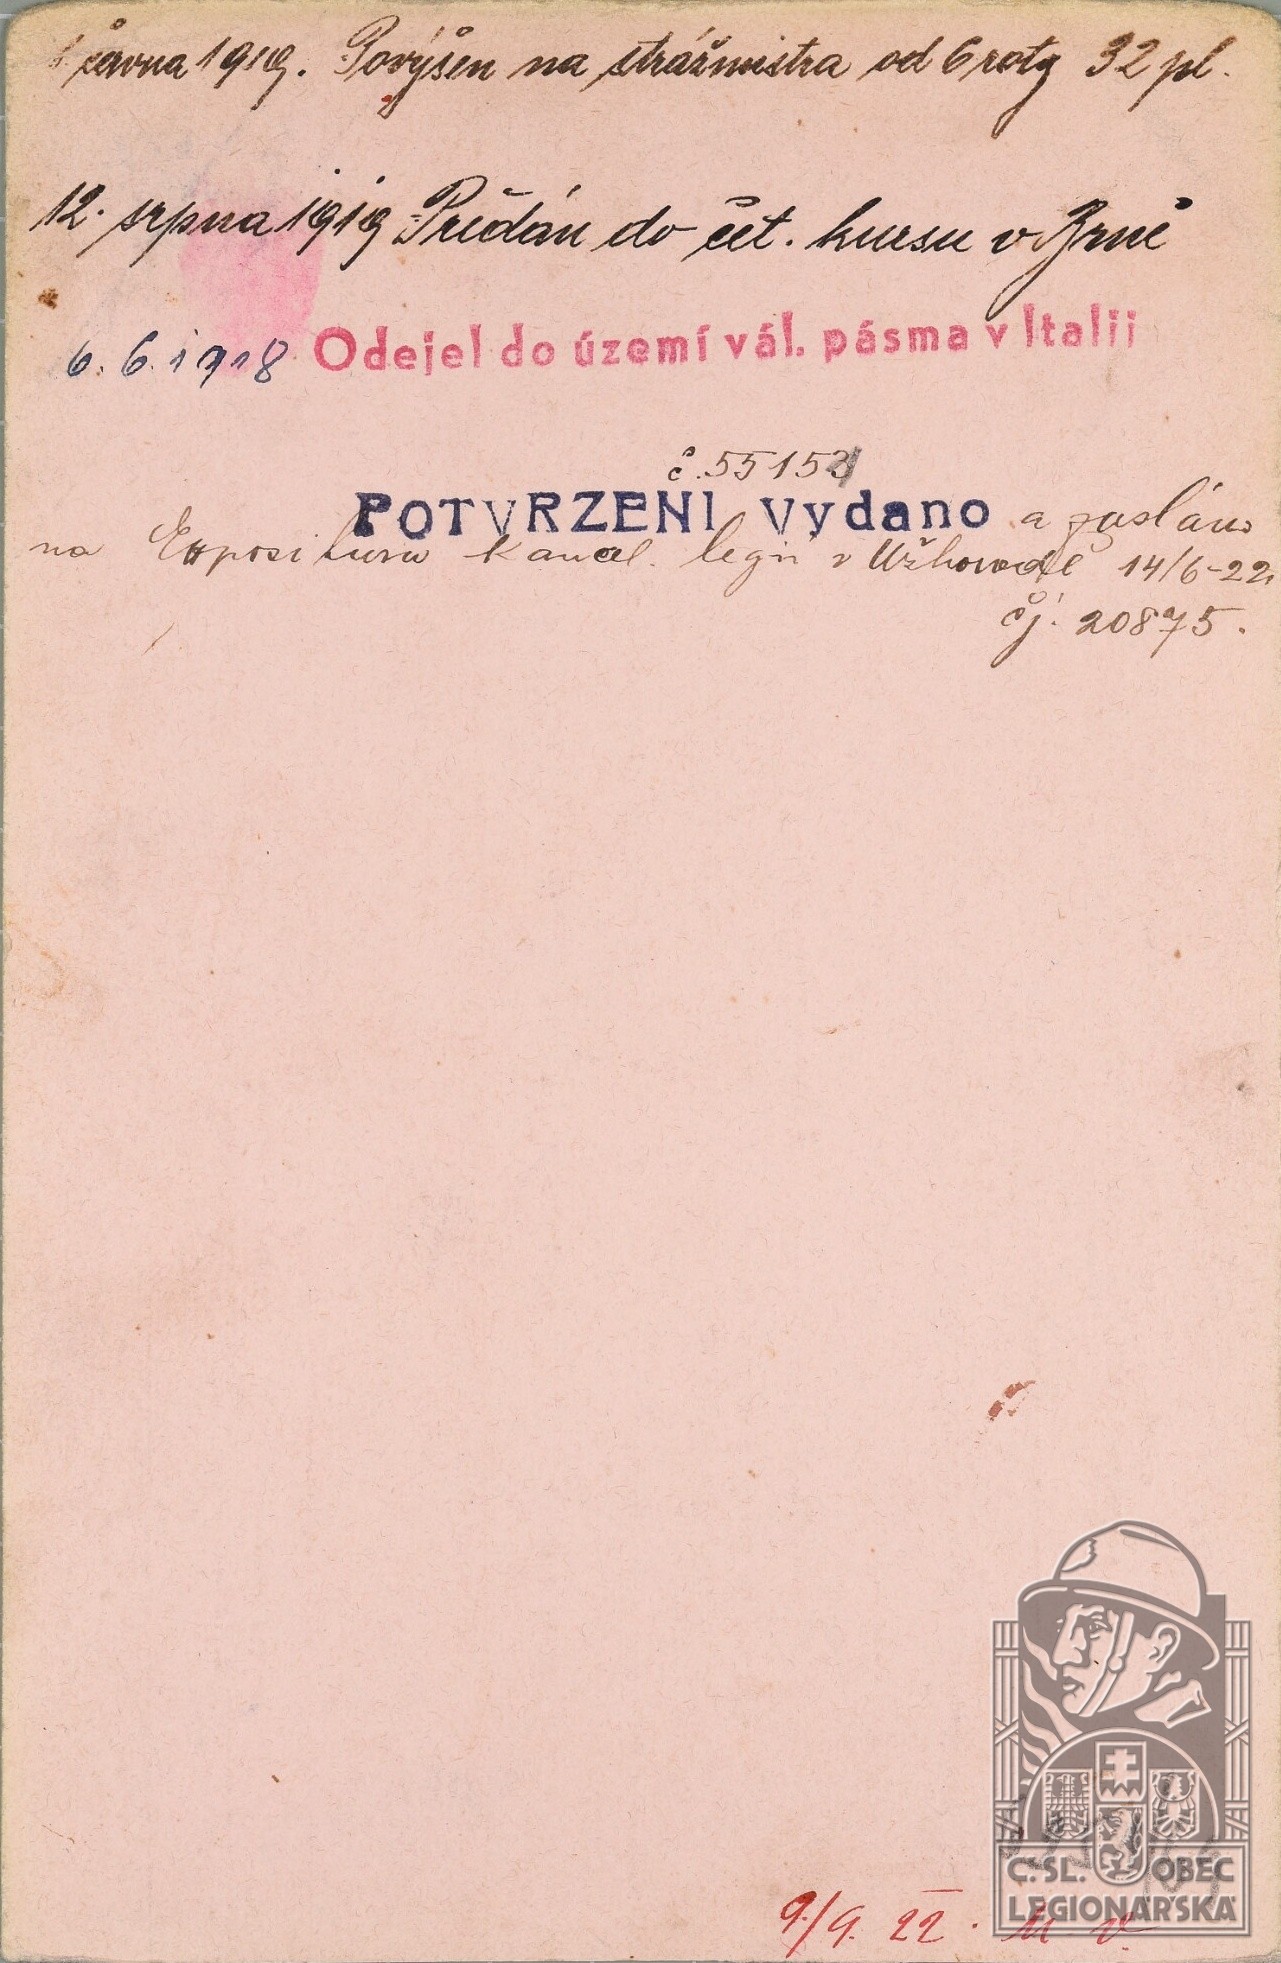 1. června 1919. Povýšen na strážmistra od 6 roty 32 pl.
12. srpna 1919 Přidán do čet. kursu v Brně
6. 6. 1918 Odejel do území vál. pásma v Italii
č. 55152
POTVRZENI vydano a zasláno
na Exposituru kancel. legií v Užhorodě 14/6-22.
čj. 20875.
Č. SL. OBEC
LEGIONÁŘSKÁ
9./9. 22.